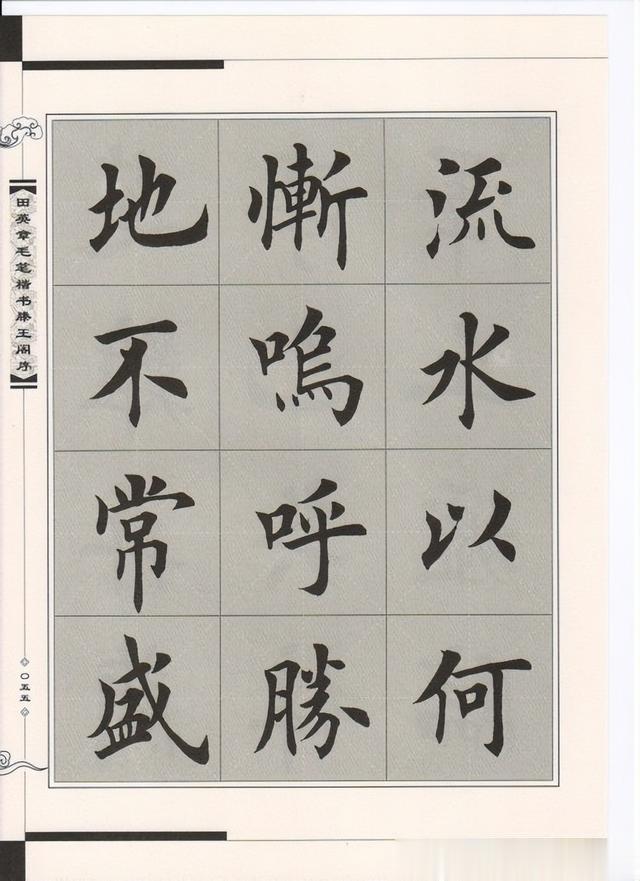 流水以何
慚嗚呼勝
地不常盛
田英章毛笔楷书滕王阁序
〇五五